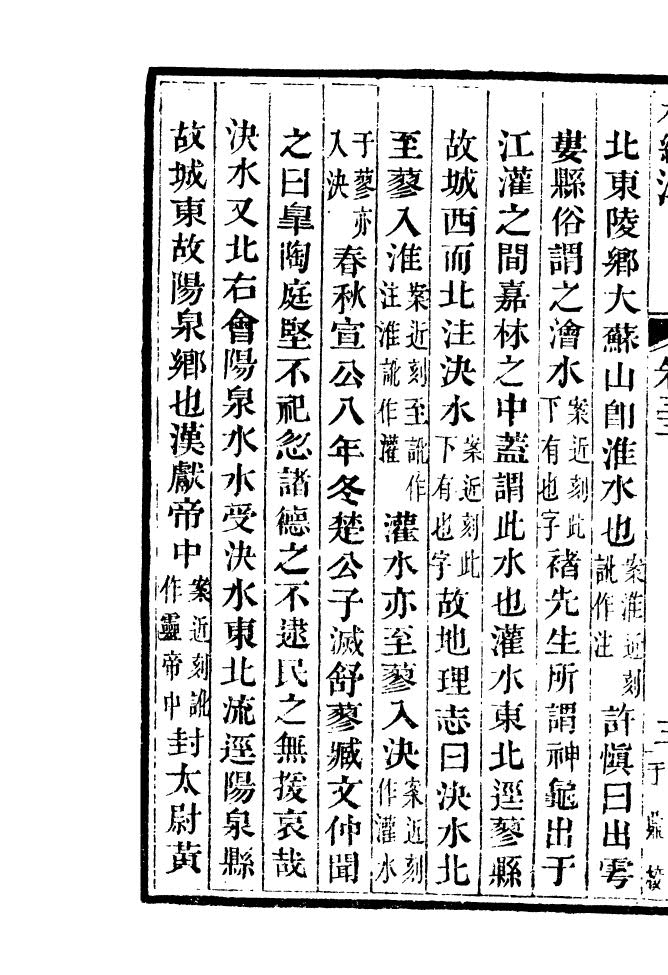 水經注 卷三十二 三 于鼎校
北東陵鄉大蘇山卽淮水也案淮近刻訛作注許慎曰出雩
婁縣俗謂之澮水案近刻此下有也字褚先生所謂神龜出于
江灌之間嘉林之中蓋謂此水也灌水東北逕蓼縣
故城西而北注決水案近刻此下有也字故地理志曰決水北
至蓼入淮案近刻至訛作注淮訛作灌灌水亦至蓼入決案近刻作灌水
于蓼亦入決春秋宣公八年冬楚公子滅舒蓼臧文仲聞
之曰臯陶庭堅不祀忽諸德之不逮民之無援哀哉
決水又北右會陽泉水水受決水東北流逕陽泉縣
故城東故陽泉鄉也漢獻帝中案近刻訛作靈帝中封太尉黃